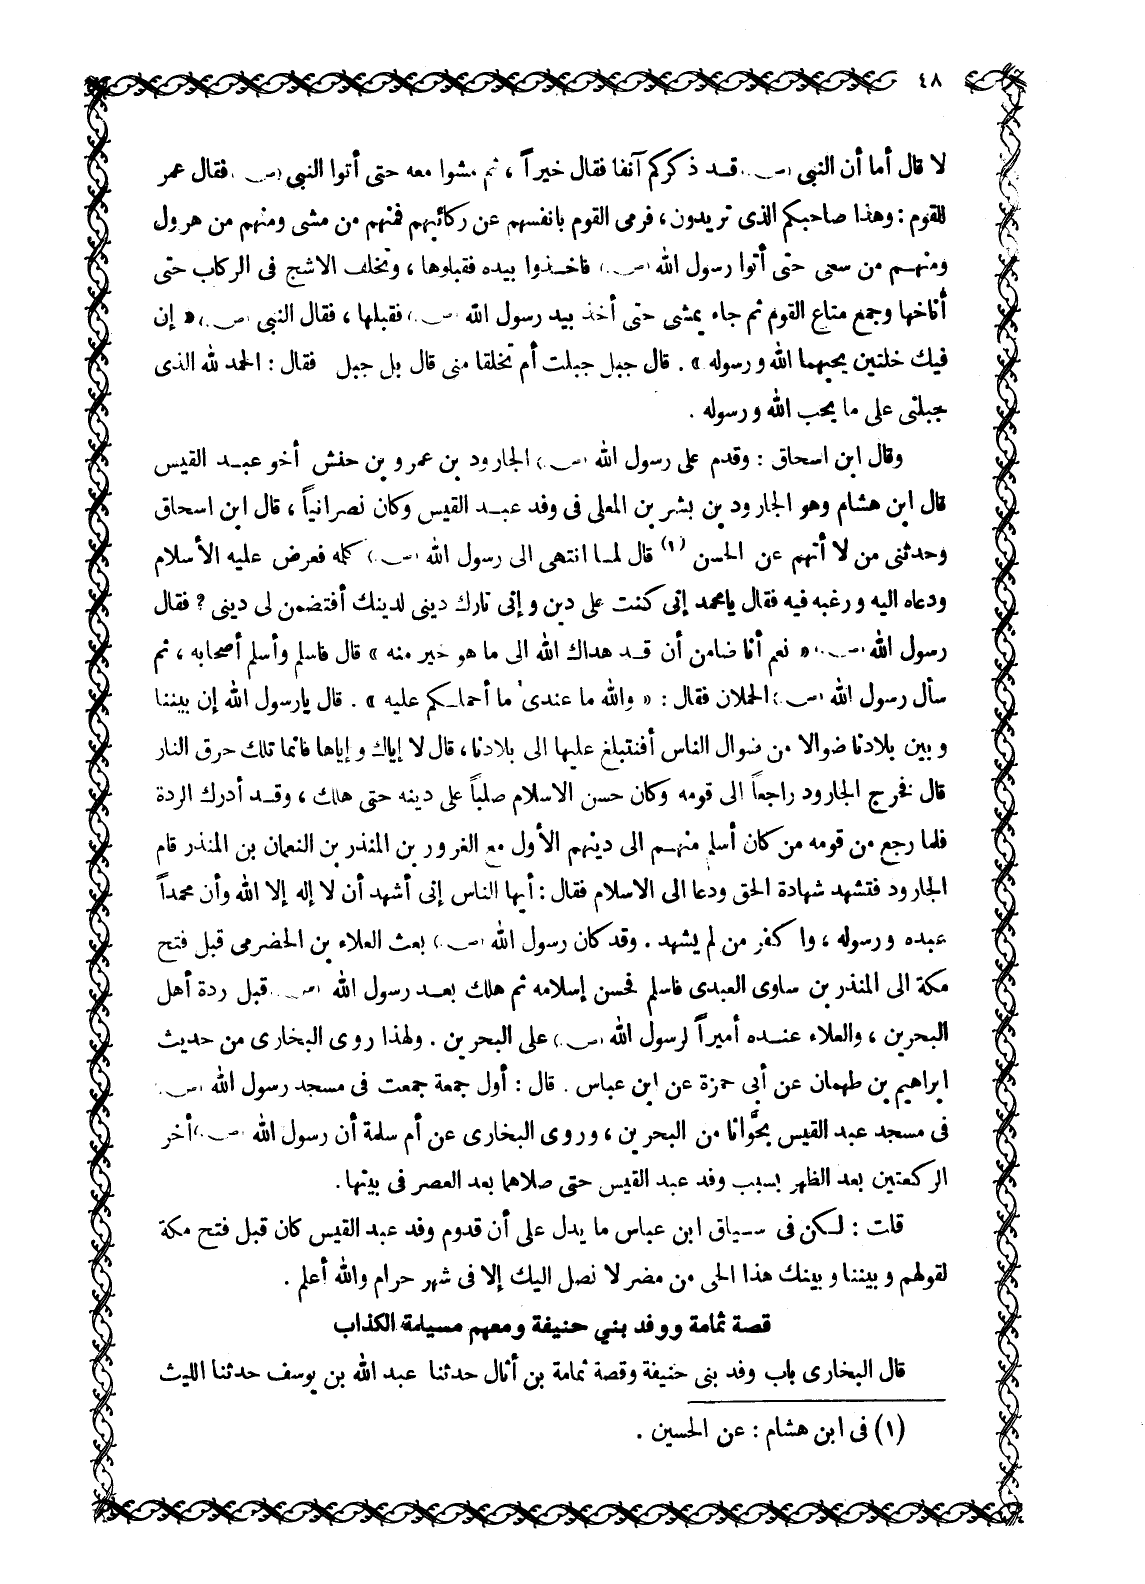 ٤٨
لا قال أما أن النبى (ص) قد ذكركم آنفا فقال خيراً ، ثم مشوا معه حتى أتوا النبى (ص) فقال عمر
للقوم : وهذا صاحبكم الذى تريدون ، فرمى القوم بانفسهم عن ركائبهم فمنهم من مشى ومنهم من هرول
ومنهم من سعى حتى أتوا رسول الله (ص) فاخذوا بيده فقبلوها ، وتخلف الاشج فى الركاب حتى
أناخها وجمع متاع القوم ثم جاء يمشى حتى أخذ بيد رسول الله (ص) فقبلها ، فقال النبى (ص) « إن
فيك خلتين يحبهما الله ورسوله » . قال جبل جبلت أم تخلقا منى قال بل جبل فقال : الحمد لله الذى
جبلنى على ما يحب الله ورسوله .
وقال ابن اسحاق : وقدم على رسول الله (ص) الجارود بن عمرو بن حنش أخو عبد القيس
قال ابن هشام وهو الجارود بن بشر بن المعلى فى وفد عبد القيس وكان نصرانياً ، قال ابن اسحاق
وحدثنى من لا أتهم عن الحسن (١) قال لما انتهى الى رسول الله (ص) كلمه فعرض عليه الأسلام
ودعاه اليه ورغبه فيه فقال يامحمد إنى كنت على دين وإنى تارك دينى لدينك أفتضمن لى دينى ؟ فقال
رسول الله (ص) « نعم أنا ضامن أن قد هداك الله الى ما هو خير منه » قال فاسلم وأسلم أصحابه ، ثم
سأل رسول الله (ص) الحملان فقال : « والله ما عندى ما أحملكم عليه » . قال يارسول الله إن بيننا
وبين بلادنا ضوالا من ضوال الناس أفنتبلغ عليها الى بلادنا ، قال لا إياك وإياها فانما تلك حرق النار
قال فخرج الجارود راجعاً الى قومه وكان حسن الاسلام صلباً على دينه حتى هلك ، وقد أدرك الردة
فلما رجع من قومه من كان أسلم منهم الى دينهم الأول مع الغرور بن المنذر بن النعمان بن المنذر قام
الجارود فتشهد شهادة الحق ودعا الى الاسلام فقال : أيها الناس إنى أشهد أن لا إله إلا الله وأن محمداً
عبده ورسوله ، واكفر من لم يشهد . وقد كان رسول الله (ص) بعث العلاء بن الحضرمى قبل فتح
مكة الى المنذر بن ساوى العبدى فاسلم فحسن إسلامه ثم هلك بعد رسول الله (ص) قبل ردة أهل
البحرين ، والعلاء عنده أميراً لرسول الله (ص) على البحرين . ولهذا روى البخارى من حديث
ابراهيم بن طهمان عن أبى حمزة عن ابن عباس . قال : أول جمعة جمعت فى مسجد رسول الله (ص)
فى مسجد عبد القيس بجوَّاثا من البحرين ، وروى البخارى عن أم سلمة أن رسول الله (ص) أخر
الركعتين بعد الظهر بسبب وفد عبد القيس حتى صلاهما بعد العصر فى بيتها .
قلت : لكن فى سياق ابن عباس ما يدل على أن قدوم وفد عبد القيس كان قبل فتح مكة
لقولهم وبيننا وبينك هذا الحى من مضر لا نصل اليك إلا فى شهر حرام والله أعلم .
قصة ثمامة ووفد بني حنيفة ومعهم مسيلمة الكذاب
قال البخارى باب وفد بنى حنيفة وقصة ثمامة بن أثال حدثنا عبد الله بن يوسف حدثنا الليث
(١) فى ابن هشام : عن الحسين .